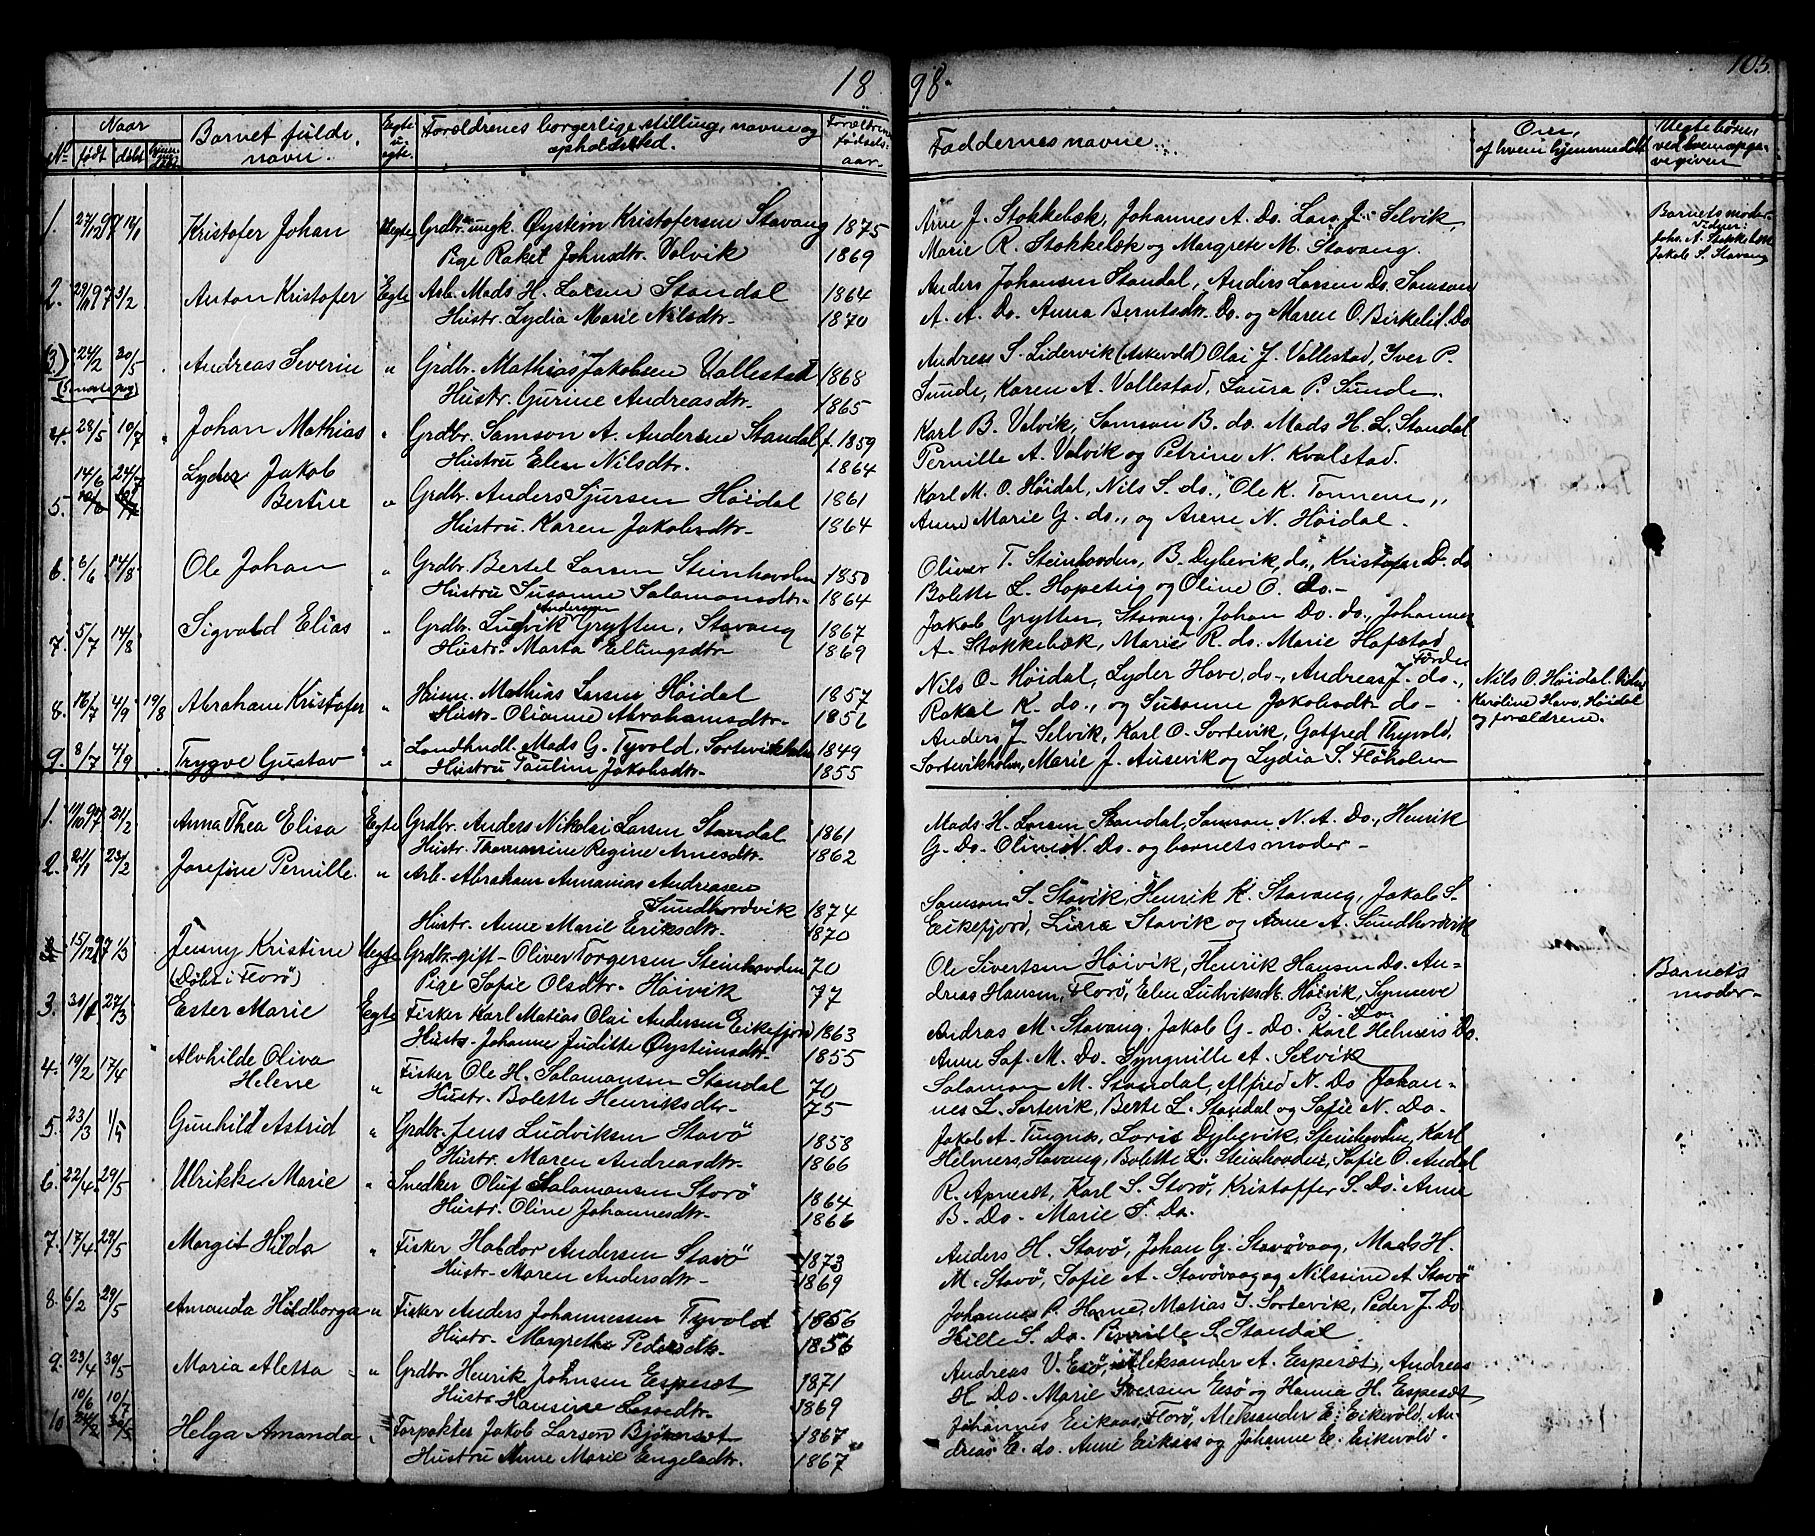 18 98. 103.
No Naar født døbt Barnets fulde navn. Egte u. uegte. Forældrenes borgerlige stilling, navne og opholdsted. Forældrenes fødselsaar. Faddernes navne. Om, af hvem hjemmedøbt Uegte børn, ved hvem opgavegiven
1. 27/12 97 14/1 Kristofer Johan Uegte Grdbr. ungk. Øystein Kristofersen Stavang 1875 Arne J. Stokkebæk, Johannes A. Do. Lars J. Selvik, Barnets moder.
Pige Rakel Johnsdtr. Valvik 1869 Marie R. Stokkebæk og Margrete M. Stavang. Vidner: Johs. A. Stokkebæk Jakob S. Stavang
2. 29/11 97 3/2 Anton Kristofer Egte Arb. Mads H. Larsen Standal 1864 Anders Johansen Standal, Anders Larsen Do. Samson
Hustr. Lydia Marie Nilsdtr. 1870 A. A. Do. Anna Berntsdtr. Do. og Maren O. Birkelid. Do
(3.) 24/2 20/5 Andreas Severin " Grdbr. Mathias Jakobsen Vallestad 1868 Andreas S. Lidervik (Askevold) Olai J. Vallestad, Iver P.
Hustr. Gurine Andreasdtr. 1865 Sunde, Karen A. Vallestad, Laura P. Sunde.
4. 28/5 10/7 Johan Mathias " Grdbr. Samson A. Andersen Standal f. 1859 Karl B. Valvik, Samson B. do. Mads H. L. Standal
Hustru Elen Nilsdtr. 1864 Pernille A. Valvik og Petrine N. Kvalstad.
5. 14/6 24/7 Lyder Jakob Bertine " Grdbr. Anders Sjursen Høidal 1861 Karl M. O. Høidal, Nils S. do., Ole K. Tonnem,
Hustru. Karen Jakobsdtr. 1864 Anne Marie G. do., og Anne N. Høidal.
6. 6/6 14/8 Ole Johan " Grdbr. Bertel Larsen Steinhovden 1850 Oliver T. Steinhovden, B. Dybevik, do., Kristofer D. do
Hustru Susanne Salamonsdtr. 1864 Bolette L. Hopeteig og Oline O. Do.
7. 5/7 14/8 Sigvald Elias " Grdbr. Ludvik Andersen Grytten, Stavang 1867 Jakob Grytten, Stavang, Johan Do. do., Johannes
Hustr. Marta Ellingsdtr. 1869 A. Stokkebæk, Marie R. do. Marie Hafstad Førde
8. 16/7 4/9 19/8 Abraham Kristofer " Husm. Mathias Larsen Høidal 1857 Nils O. Høidal, Lyder Hove, do., Andreas J. do., Nils O. Høidal.
Hustr. Olianne Abrahamsdtr. 1856 Rakel K. do., og Susanne Jakobsdt. do. Karoline Hove, Høidal og forældrene.
9. 8/7 4/9 Trygve Gustav " Landhndl. Mads G. Tyvold, Sortevikholm 1849 Anders J. Selvik, Karl O. Sortevik, Gotfred Thyvold,
Hustru Pauline Jakobsdtr. 1855 Sortevikholm, Marie J. Ausevik og Lydia S. Fløholm
1. 11/10 97 21/2 Anna Thea Elisa Egte Grdbr. Anders Nikolai Larsen Standal 1861 Mads H. Larsen Standal, Samson N. A. Do., Henrik
Hustr. Thomassine Regine Arnesdtr. 1862 G. Do. Oline N. Do. og barnets moder
2. 21/1 23/2 Josefine Pernille. " Arb. Abraham Annanias Andreasen
Sundhordvik 1874 Samson S. Stavik, Henrik K. Stavang, Jakob S.
Hustr. Anne Marie Eriksdtr. 1870 Eikefjord, Lissa Stavik og Anne A. Sundhordvik
15/12 97 1/3 Jenny Kristine Uegte Grdbr. gift Oliver Torgersen Steinhovden 70 Ole Sivertsen Høivik, Henrik Hansen Do. An- Barnets
(Døbt i Florø) Pige Sofie Olsdtr. Høivik 77 dreas Hansen, Florø, Elen Ludviksdt. Høivik, Synneve B. Do. moder.
3. 30/1 27/3 Ester Marie Egte Fisker Karl Matias Olai Andersen Eikefjord 1863 Andras M. Stavang, Jakob G. Do. Karl Helmers Do.
Hustr. Johanne Juditte Øysteinsdtr. 1855 Anne Sof. M. Do. Syngnille A. Selvik
4. 19/2 17/4 Alvhilde Oliva Helene " Fisker Ole H. Salamonsen Standal 70 Salamon M. Standal, Alfred N. Do Johan-
Hustr. Bolette Henriksdtr. 75 nes L. Sortevik, Berte L. Standal og Sofie N. Do.
5. 23/3 1/5 Gunhild Astrid " Grdbr. Jens Ludviksen Stavø 1858 Jakob A. Tingnes, Loris Dybevik, Steinhovden, Karl
Hustr. Maren Andreasdtr. 1866 Helmers, Stavang, Bolette L. Steinhovden, Sofie O. Andal
6. 22/4 29/5 Ulrikke Marie " Snedker Oluf Salamonsen Storø 1864 R. Agnesdt, Karl S. Storø, Kristoffer S. Do. Anne
Hustr. Oline Johannesdtr. 1866 B. Do. Marie S. Do.
7. 17/4 29/5 Margit Hilda " Fisker Haldor Andersen Stavø 1873 Anders H. Stavø, Johan G. Stavøvaag, Mads H.
Hustr. Maren Andersdtr. 1869 M. Stavø, Sofie A. Stavøvaag og Nilssine A. Stavø
8. 6/2 29/5 Amanda Hildborga " Fisker Anders Johannessen Tyvold 1856 Johannes P. Horne, Matias I. Sortevik, Peder J. Do.
Hustr. Margrethe Pedersdtr. 1856 Hille S. Do. Pernille L. Standal
9. 23/4 30/5 Maria Aletta " Grdbr. Henrik Johnsen Espeset 1871 Andreas V. Esø, Aleksander A. Espeset, Andreas
Hustr. Hansine 1869 H. Do. Marie Iversen Esø og Hanna H. Espeset
10 10/6 10/7 Helga Amanda " Forpakter Jakob Larsen Bjørnset 1867 Johannes Eikaas, Florø, Aleksander E. Eikevold, An-
Hustru Anne Marie Engelsdtr. 1867 dreas E. do. Anne Eikaas og Johanne E. Eikevold.